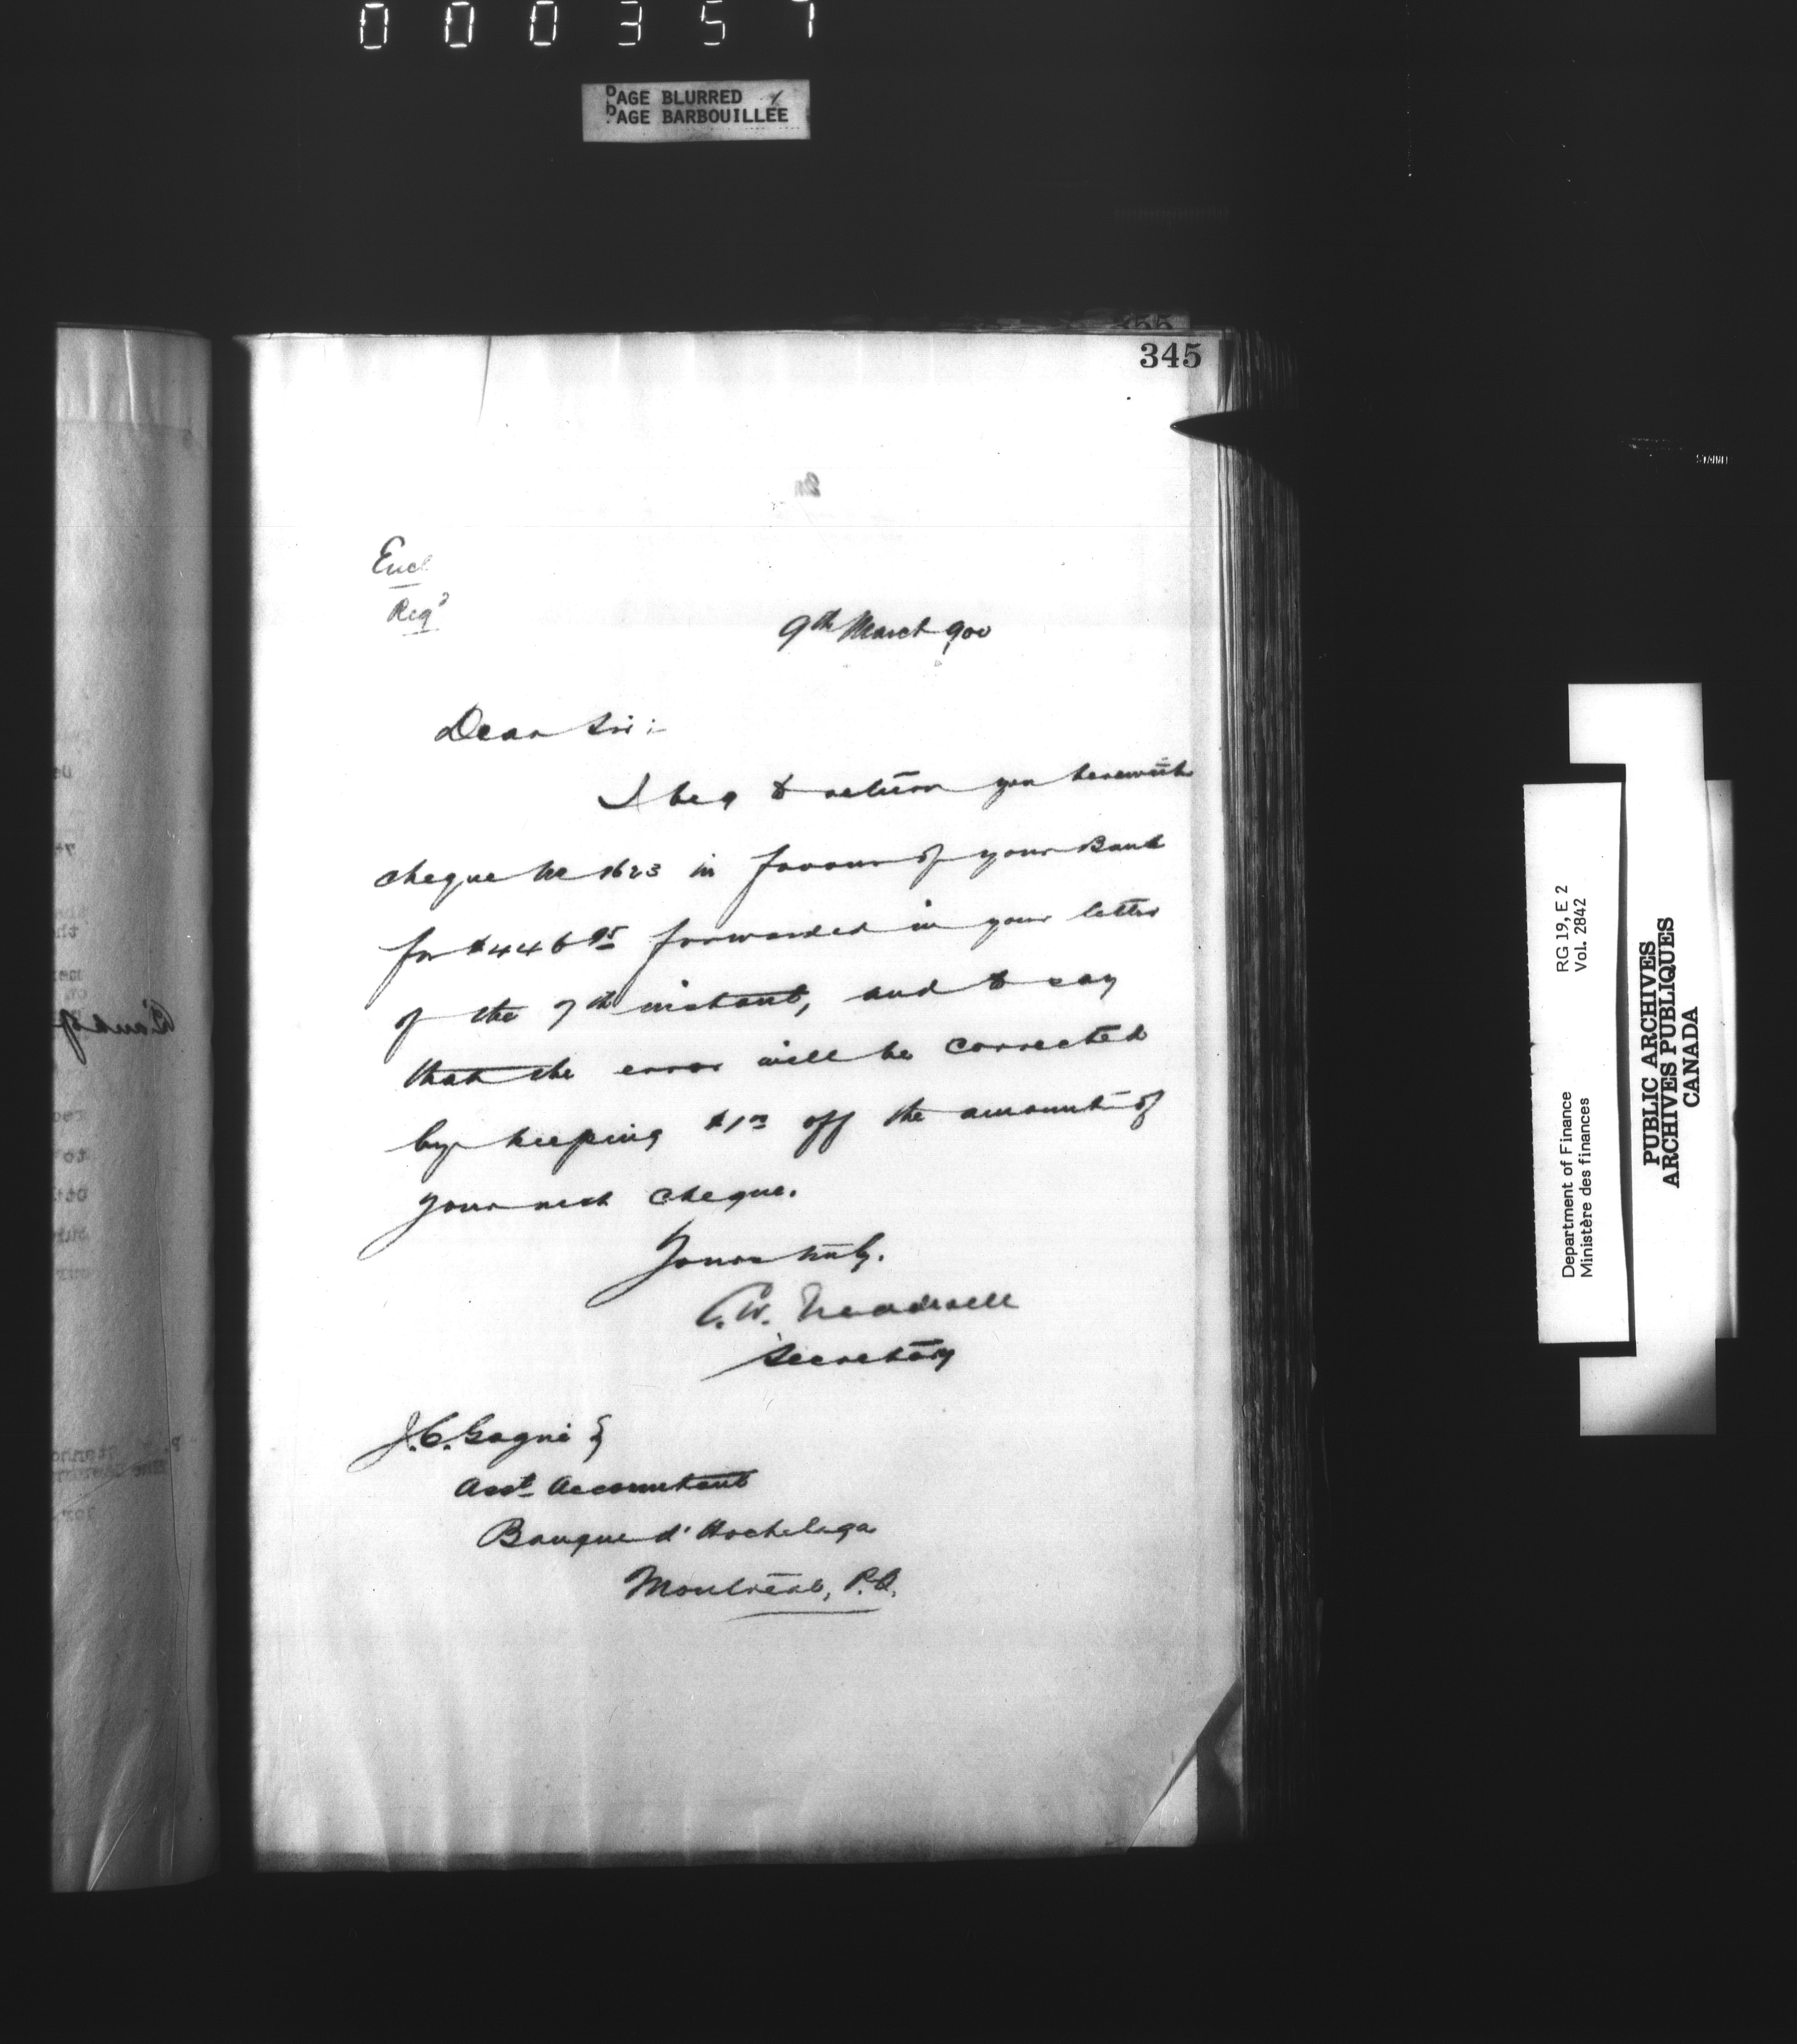 000357
PAGE BLURRED
PAGE BARBOUILLÉE
345
Encl
Reg'd
9th March 900
Dear Sir:-
I beg to return you herewith
cheque No 1623 in favour of your Bank
for $446 95 forwarded in your letter
of the 7th instant, and to say
that the error will be corrected
by keeping $1 00 off the amount of
your next cheque.
Yours truly.
C.W. Treadwell
Secretary
J.C. Gagné
Asst Accountant
Banque d'Hochelaga
Montreal, P.Q.
RG 19, E 2
Vol. 2842
Department of Finance
Ministère des finances
PUBLIC ARCHIVES
ARCHIVES PUBLIQUES
CANADA